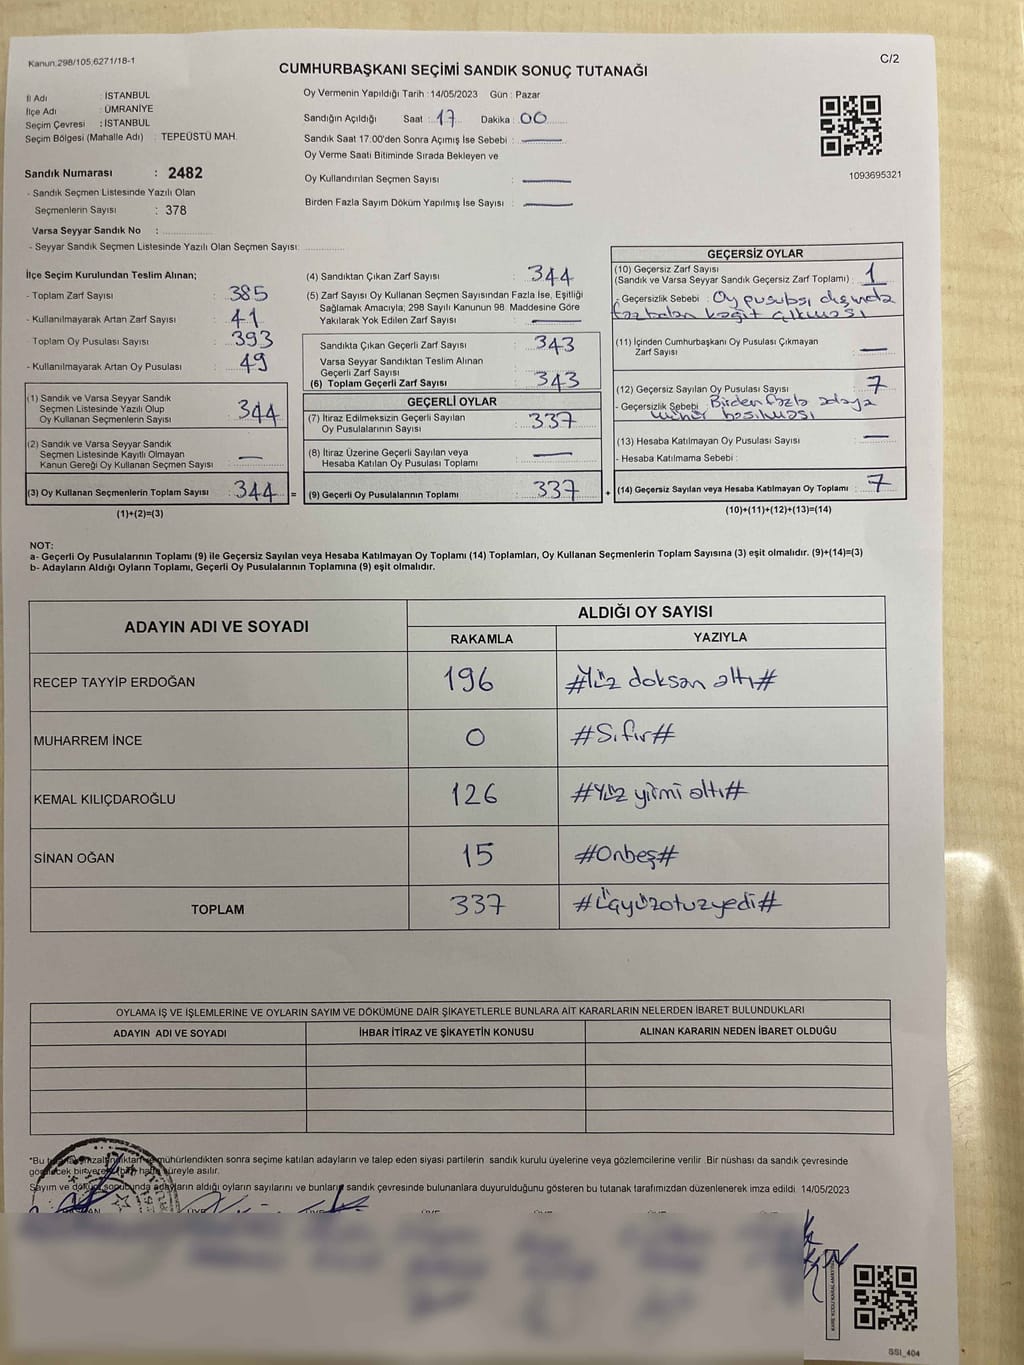 Kanun.298/105,6271/18-1
C/2
CUMHURBAŞKANI SEÇİMİ SANDIK SONUÇ TUTANAĞI
İl Adı : İSTANBUL
İlçe Adı : ÜMRANİYE
Seçim Çevresi : İSTANBUL
Seçim Bölgesi (Mahalle Adı) : TEPEÜSTÜ MAH.
Sandık Numarası : 2482
- Sandık Seçmen Listesinde Yazılı Olan
Seçmenlerin Sayısı : 378
Varsa Seyyar Sandık No :
- Seyyar Sandık Seçmen Listesinde Yazılı Olan Seçmen Sayısı:
Oy Vermenin Yapıldığı Tarih : 14/05/2023 Gün : Pazar
Sandığın Açıldığı Saat : 17 Dakika : 00
Sandık Saat 17.00'den Sonra Açımış İse Sebebi : —
Oy Verme Saati Bitiminde Sırada Bekleyen ve
Oy Kullandırılan Seçmen Sayısı : —
Birden Fazla Sayım Döküm Yapılmış İse Sayısı : —
1093695321
İlçe Seçim Kurulundan Teslim Alınan;
- Toplam Zarf Sayısı : 385
- Kullanılmayarak Artan Zarf Sayısı : 41
- Toplam Oy Pusulası Sayısı : 393
- Kullanılmayarak Artan Oy Pusulası : 49
(1) Sandık ve Varsa Seyyar Sandık
Seçmen Listesinde Yazılı Olup
Oy Kullanan Seçmenlerin Sayısı : 344
(2) Sandık ve Varsa Seyyar Sandık
Seçmen Listesinde Kayıtlı Olmayan
Kanun Gereği Oy Kullanan Seçmen Sayısı : —
(3) Oy Kullanan Seçmenlerin Toplam Sayısı : 344 =
(1)+(2)=(3)
(4) Sandıktan Çıkan Zarf Sayısı : 344
(5) Zarf Sayısı Oy Kullanan Seçmen Sayısından Fazla İse, Eşitliği
Sağlamak Amacıyla; 298 Sayılı Kanunun 98. Maddesine Göre
Yakılarak Yok Edilen Zarf Sayısı : —
Sandıkta Çıkan Geçerli Zarf Sayısı : 343
Varsa Seyyar Sandıktan Teslim Alınan
Geçerli Zarf Sayısı :
(6) Toplam Geçerli Zarf Sayısı : 343
GEÇERLİ OYLAR
(7) İtiraz Edilmeksizin Geçerli Sayılan
Oy Pusulalarının Sayısı : 337
(8) İtiraz Üzerine Geçerli Sayılan veya
Hesaba Katılan Oy Pusulası Toplamı : —
(9) Geçerli Oy Pusulalarının Toplamı : 337 +
GEÇERSİZ OYLAR
(10) Geçersiz Zarf Sayısı
(Sandık ve Varsa Seyyar Sandık Geçersiz Zarf Toplamı) : 1
- Geçersizlik Sebebi : Oy pusubsı dışında
fazladan kağıt çıkması
(11) İçinden Cumhurbaşkanı Oy Pusulası Çıkmayan
Zarf Sayısı : —
(12) Geçersiz Sayılan Oy Pusulası Sayısı : 7
- Geçersizlik Sebebi : Birden fazla adaya
mühür basılması
(13) Hesaba Katılmayan Oy Pusulası Sayısı : —
- Hesaba Katılmama Sebebi :
(14) Geçersiz Sayılan veya Hesaba Katılmayan Oy Toplamı : 7
(10)+(11)+(12)+(13)=(14)
NOT:
a- Geçerli Oy Pusulalarının Toplamı (9) ile Geçersiz Sayılan veya Hesaba Katılmayan Oy Toplamı (14) Toplamları, Oy Kullanan Seçmenlerin Toplam Sayısına (3) eşit olmalıdır. (9)+(14)=(3)
b- Adayların Aldığı Oyların Toplamı, Geçerli Oy Pusulalarının Toplamına (9) eşit olmalıdır.
ADAYIN ADI VE SOYADI ALDIĞI OY SAYISI
RAKAMLA YAZIYLA
RECEP TAYYİP ERDOĞAN 196 #Yüz doksan altı#
MUHARREM İNCE 0 #Sıfır#
KEMAL KILIÇDAROĞLU 126 #Yüz yirmi altı#
SİNAN OĞAN 15 #Onbeş#
TOPLAM 337 #Üçyüzotuzyedi#
OYLAMA İŞ VE İŞLEMLERİNE VE OYLARIN SAYIM VE DÖKÜMÜNE DAİR ŞİKAYETLERLE BUNLARA AİT KARARLARIN NELERDEN İBARET BULUNDUKLARI
ADAYIN ADI VE SOYADI İHBAR İTİRAZ VE ŞİKAYETİN KONUSU ALINAN KARARIN NEDEN İBARET OLDUĞU
*Bu mühürlendikten sonra seçime katılan adayların ve talep eden siyasi partilerin sandık kurulu üyelerine veya gözlemcilerine verilir. Bir nüshası da sandık çevresinde
süreyle asılır.
Sayım ve döküm sonucunda adayların aldığı oyların sayılarını ve bunların sandık çevresinde bulunanlara duyurulduğunu gösteren bu tutanak tarafımızdan düzenlenerek imza edildi. 14/05/2023
SSI_404